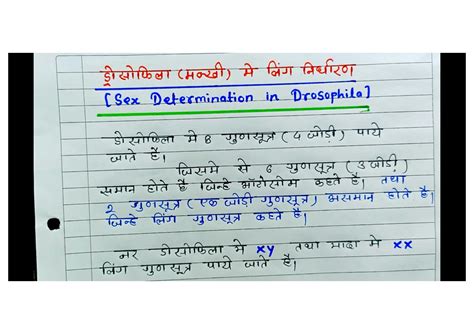 ड्रोसोफिला (मक्खी) मे लिंग निर्धारण
[Sex Determination in Drosophila]
ड्रोसोफिला मे 8 गुणसूत्र (4 जोड़ी) पाये
जाते है।
जिसमे से 6 गुणसूत्र (3 जोड़ी)
समान होते है जिन्हे ऑटोसोम कहते है। तथा
2 गुणसूत्र (एक जोड़ी गुणसूत्र) असमान होते है।
जिन्हे लिंग गुणसूत्र कहते है।
नर ड्रोसोफिला मे xy तथा मादा मे xx
लिंग गुणसूत्र पाये जाते है।